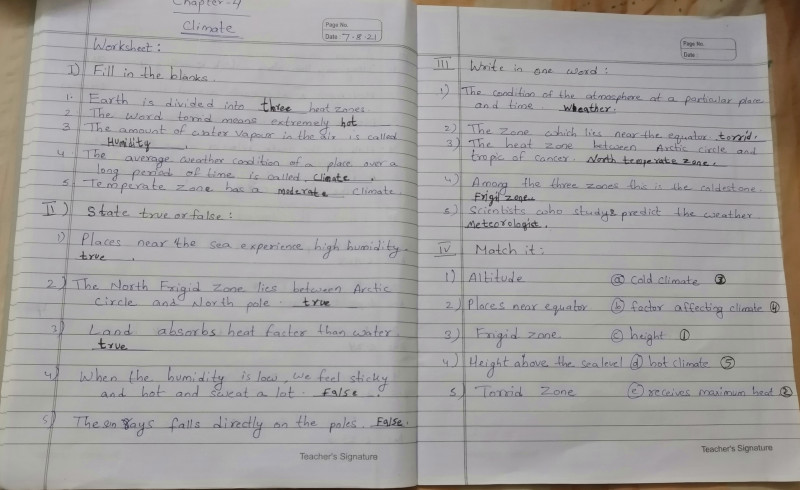 Chapter-4
Climate
Page No.
Date: 7-8-21
Worksheet:
I) Fill in the blanks
1. Earth is divided into three heat zones.
2 The word torrid means extremely hot
3 The amount of water vapour in the air is called
Humility.
4 The average weather condition of a place over a
long period of time is called. Climate.
5 Temperate zone has a moderate climate.
II) State true or false:
1) Places near the sea experience high humidity.
true.
2) The North Frigid Zone lies between Arctic
Circle and North pole. true
3) Land absorbs heat faster than water.
true
4) When the humidity is low, we feel sticky
and hot and sweat a lot. False.
5) The sun rays falls directly on the poles. False.
Teacher's Signature
Page No.
Date:
III Write in one word:
1) The condition of the atmosphere at a particular place
and time Wheather.
2) The Zone which lies near the equator torrid.
3) The heat zone between Arctic circle and
tropic of cancer. North temperate zone.
4) Among the three zones this is the coldest one.
Frigil zone
5) Scientists who study & predict the weather
Meteorologist.
IV Match it:
1) Altitude (a) Cold climate (3)
2) Places near equator (b) factor affecting climate (4)
3) Frigid zone (c) height (1)
4) Height above the sea level (d) hot climate (5)
5) Torrid Zone (e) receives maximum heat (2)
Teacher's Signature